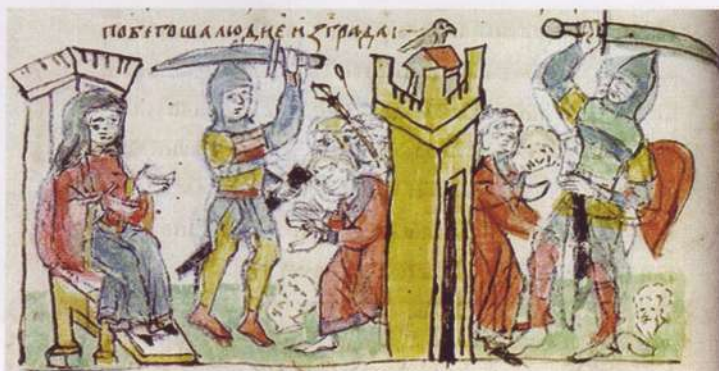 ПОБЕГОША ЛЮДИЕ ИЗ ГРАДА: